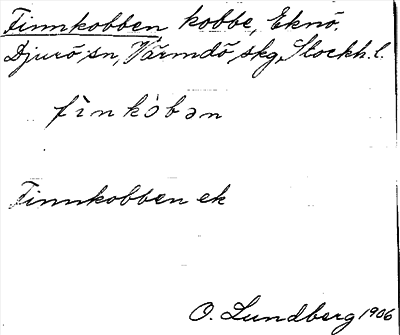 Finnkobben, kobbe, Eknö.
Djurö sn, Värmdö skg, Stockh. l.
fìnkòbən
Finnkobben ek
O. Lundberg 1906